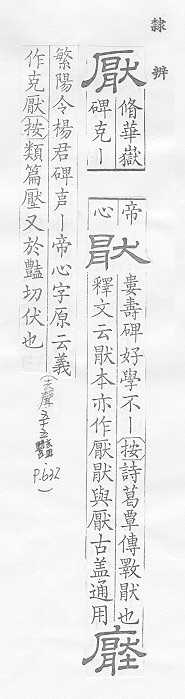 隸辨
厭
脩華嶽
碑克丨
帝
心
猒
婁壽碑好學不丨按詩葛覃傳斁猒也
釋文云猒本亦作厭猒與厭古蓋通用
壓
繁陽令楊君碑言丨帝心字原云義
作克厭按類篇壓又於豔切伏也
(去聲 五十五 P.632)